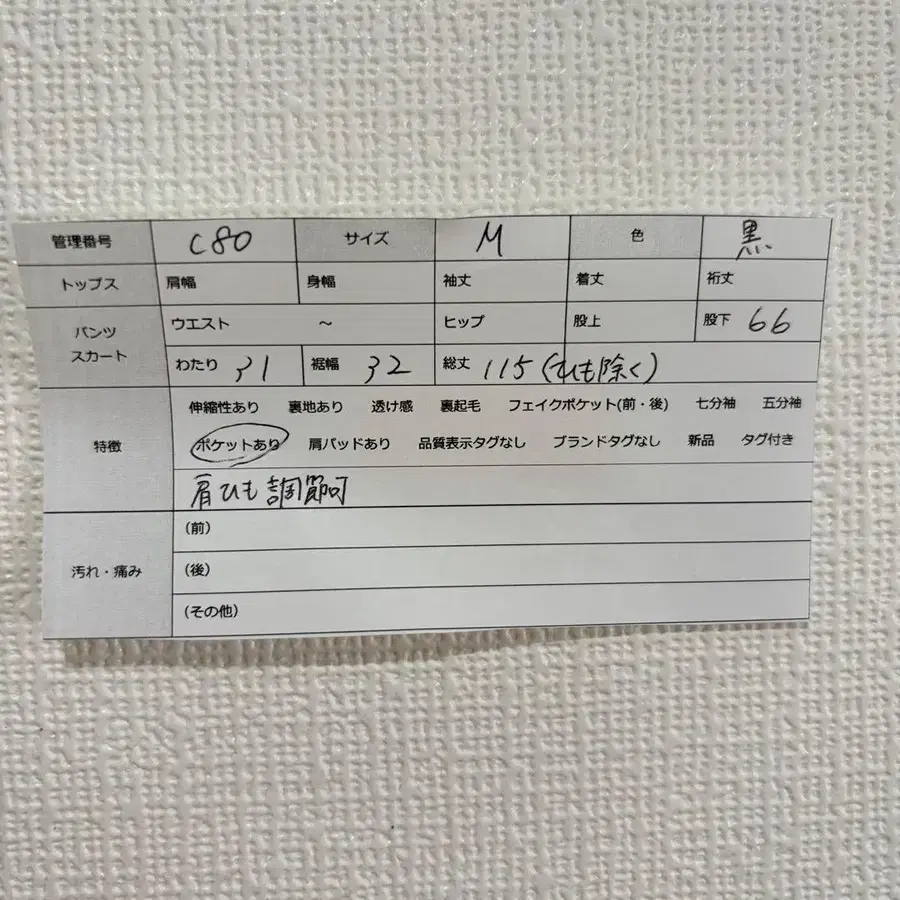 管理番号 C80 サイズ M 色 黒
トップス 肩幅 身幅 袖丈 着丈 裄丈
パンツ スカート ウエスト ～ ヒップ 股上 股下 66
わたり 31 裾幅 32 総丈 115(ひも除く)
特徴 伸縮性あり 裏地あり 透け感 裏起毛 フェイクポケット(前・後) 七分袖 五分袖
ポケットあり 肩パッドあり 品質表示タグなし ブランドタグなし 新品 タグ付き
肩ひも調節可
汚れ・痛み (前)
(後)
(その他)